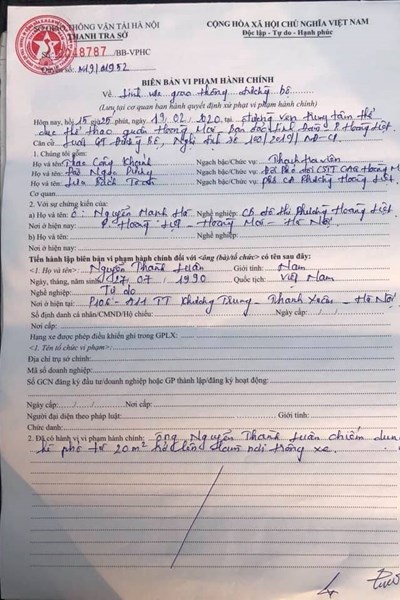 SỞ GIAO THÔNG VẬN TẢI HÀ NỘI
CỘNG HÒA XÃ HỘI CHỦ NGHĨA VIỆT NAM
THANH TRA SỞ
Độc lập - Tự do - Hạnh phúc
48787 /BB-VPHC
BIÊN BẢN VI PHẠM HÀNH CHÍNH
Về : Lĩnh vực giao thông đường bộ
(Lưu tại cơ quan ban hành quyết định xử phạt vi phạm hành chính)
Hôm nay, hồi 15 giờ 25 phút, ngày 19 / 02 / 2020 tại đường ven trung tâm thể
dục thể thao quận Hoàng Mai P. Hoàng Liệt
Căn cứ Luật GT Đường Bộ, Nghị định số 100/2019/NĐ-CP
1. Chúng tôi gồm:
Họ và tên: Công Khanh Ngạch bậc/Chức vụ: Thanh tra viên
Họ và tên: Ngọc Ngạch bậc/Chức vụ: CAQ Hoàng M
Họ và tên: Bách Ngạch bậc/Chức vụ: CA Phường Hoàng Liệt
Cơ quan
2. Với sự chứng kiến của:
a) Họ và tên: Ô: Nguyễn Mạnh Hà Nghề nghiệp: CB đô thị Phường Hoàng Liệt
Nơi ở hiện nay: P. Hoàng Liệt - Hoàng Mai - Hà Nội
b) Họ và tên: Nghề nghiệp:
Nơi ở hiện nay:
Tiến hành lập biên bản vi phạm hành chính đối với <ông (bà)/tổ chức> có tên sau đây:
<1. Họ và tên>: Nguyễn Thành Luân Giới tính: Nam
Ngày, tháng, năm sinh: 27 / 07 / 1990 Quốc tịch: Việt Nam
Nghề nghiệp: Tự do
Nơi ở hiện tại: P106 - A11 TT Khương Trung - Thanh Xuân - Hà Nội
Số định danh cá nhân/CMND/Hộ chiếu: Ngày cấp: / /
Nơi cấp:
Hạng xe được phép điều khiển ghi trong GPLX:
<1. Tên tổ chức vi phạm>:
Địa chỉ trụ sở chính:
Mã số doanh nghiệp:
Số GCN đăng ký đầu tư/doanh nghiệp hoặc GP thành lập/đăng ký hoạt động:
Ngày cấp: / / Nơi cấp:
Người đại diện theo pháp luật: Giới tính:
Chức danh:
2. Đã có hành vi vi phạm hành chính: ông Nguyễn Thành Luân chiếm dụng
hè phố từ 20m² làm nơi trông xe.